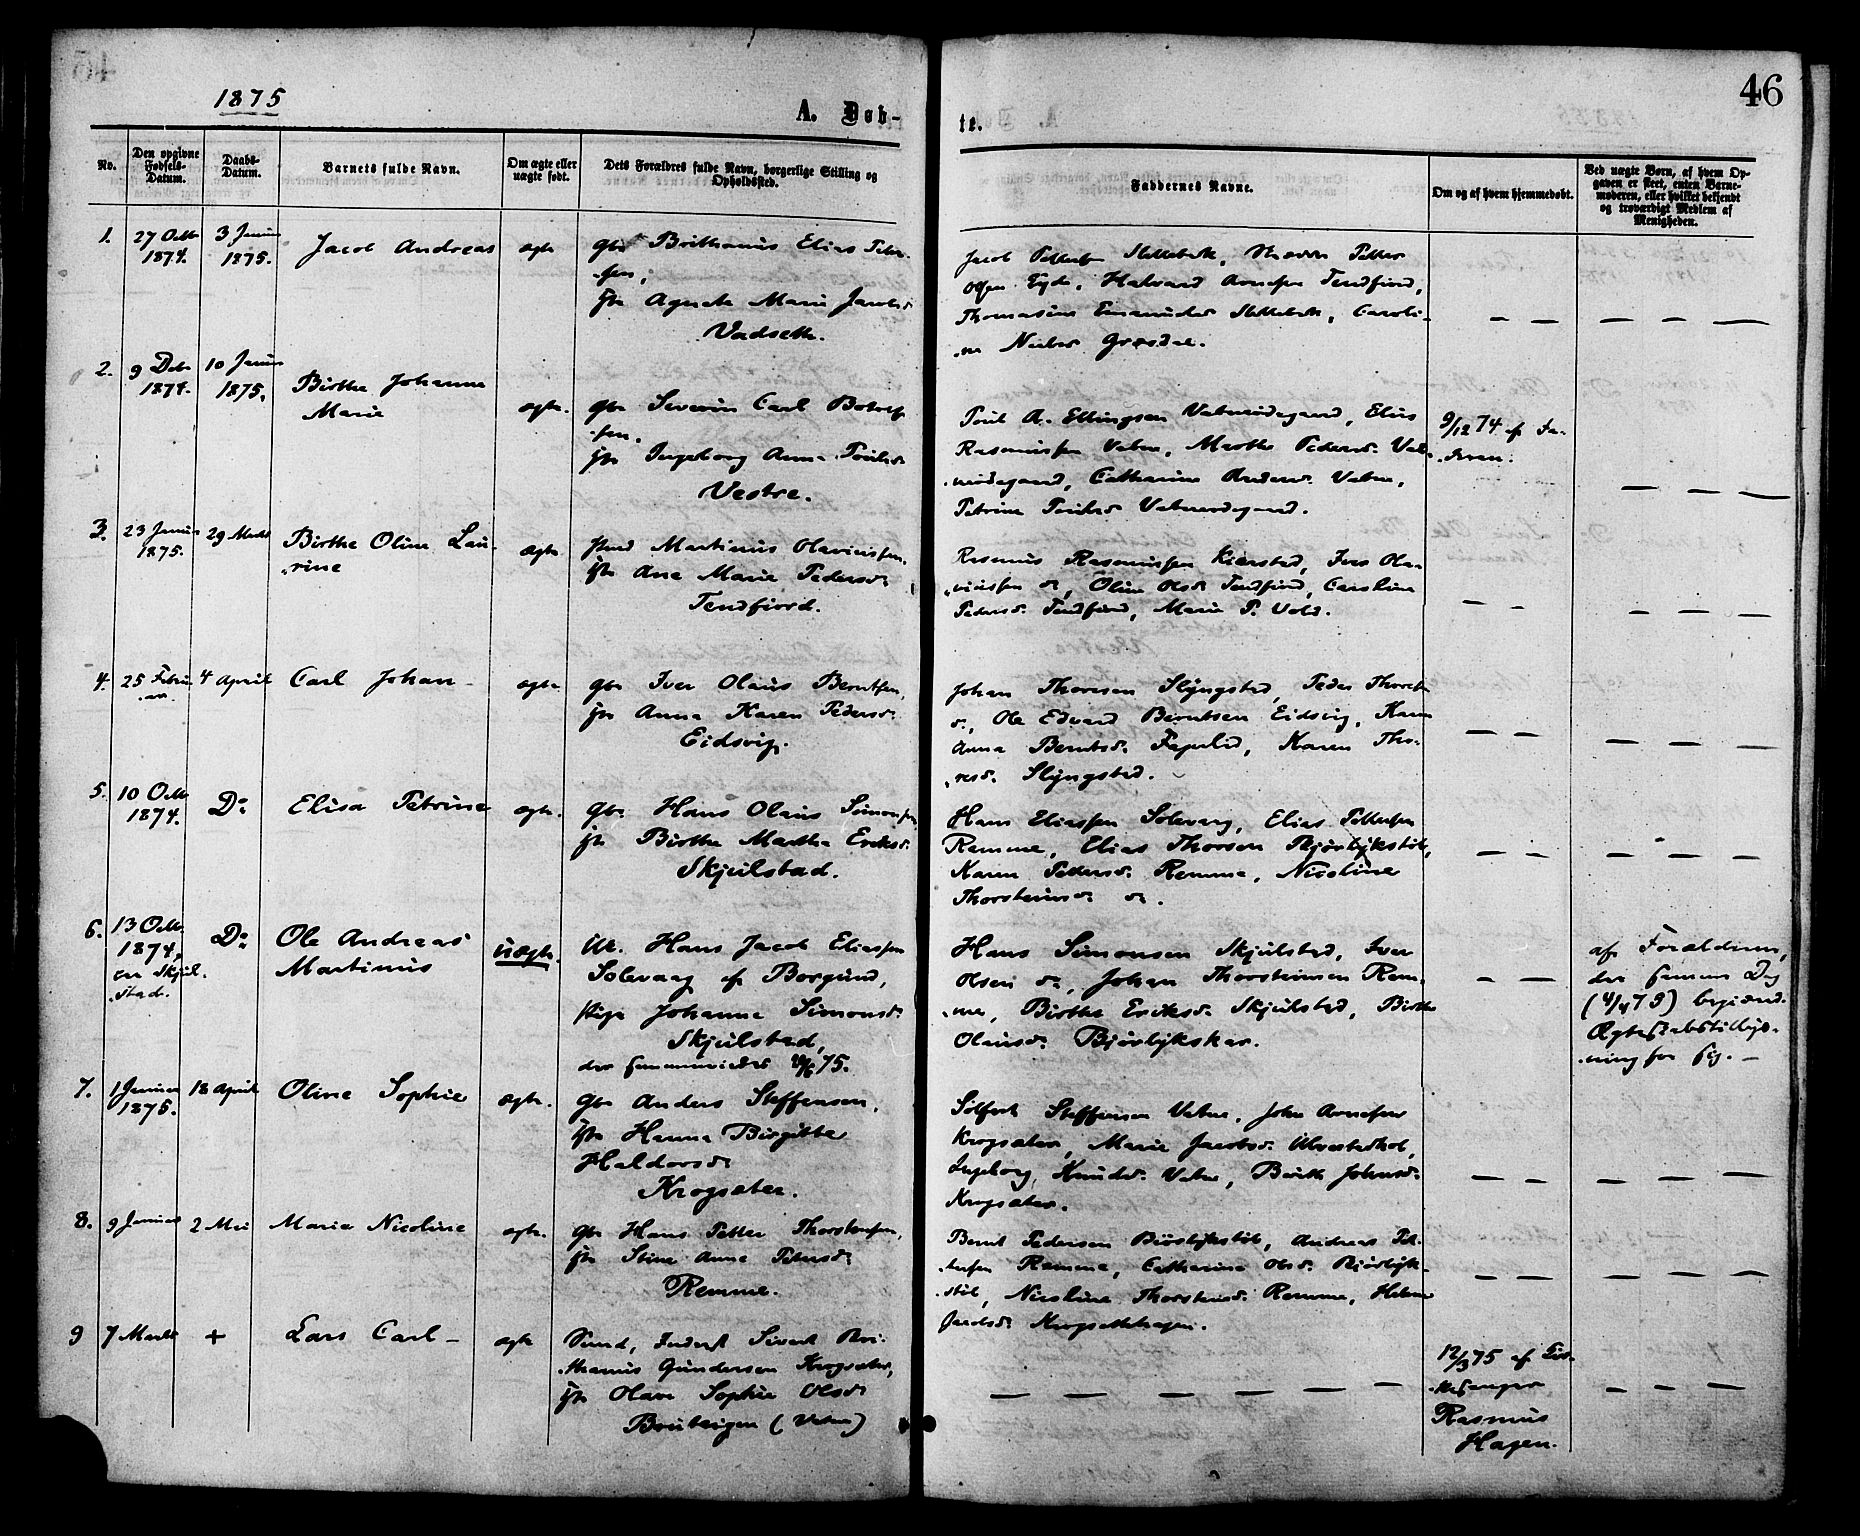 46
1875
A. Døb-
te.
No.
Den opgivne Fødsels-Datum.
Daabs-Datum.
Barnets fulde Navn.
Om ægte eller uægte født.
Dets Forældres fulde Navn, borgerlige Stilling og Opholdssted.
Faddernes Navne.
Om og af hvem hjemmedøbt.
Ved uægte Børn, af hvem Opgaven er skeet, enten Barnemoderen, eller hvilket bekjendt og troværdigt Medlem af Menigheden.
1.
27 Octb
1874.
3 Januar
1875.
Jacob Andreas
ægte
Elias Peter-
-sen,
Agnete Marie Jacobsd
Vadseth.
Jacob Pettersen Slettebak, Petter
Olsen Eyde, Halvard Arnesen Tendfiord,
Slettebak, Caroli-
-ne Grøsdal.
2.
9 Dcbr
1874.
10 Januar
1875.
Birthe Johanne
Marie
ægte.
Gbr Severin Carl
-sen.
Ingeborg Anna
Vestre.
A. Ellingsen Vatneødegaard, Elias
Rasmussen Vatne, Marthe Pedersd. Vat-
-neødegaard, Catharine Andersd. Vatne,
Petrine Vatneødegaard.
9/12 74 af Fa-
-deren.
3.
23 Januar
1875.
29 Marts
Birthe Oline Lau-
-rine
ægte.
Martinus Olaviussen,
Ane Marie Pedersd.
Tendfiord.
Rasmus Rasmussen Kiærstad, Iver Ola-
-viussen do, Oline Olsd Tendfiord, Caroline
Pedersd. Tendfiord, Marie P. Vold.
4.
25 Febru-
-ar
4 April
Carl Johan
ægte.
Gbr Iver Olaus Berntsen,
Anna Karen Pedersd.
Eidsvig.
Johan Thoresen Slyngstad, Peder Thoresen
do., Ole Edvard Berntsen Eidsvig, Karen
Anna Berntsd. Karen Tho-
-resd. Slyngstad.
5.
10 Octb
1874.
Do
Elisa Petrine
ægte.
Gbr. Hans Olaus Simonsen,
Birthe Marthe Eriksd.
Skjulstad.
Hans Eliassen Solevaag, Elias Pettersen
Remme, Elias Thorsen Bjørlykstøl,
Karen Pedersd. Remme, Nicoline
Thorsteinsd do.
6.
13 Octb
1874,
Skjul-
-stad.
Do
Ole Andreas
Martinus
uægte.
Uk. Hans Jacob Eliassen
Solevaag af Borgund,
Pige Johanne Simonsd.
Skjulstad,
75.
Hans Simonsen Skjulstad, Iver
Olsen do, Johan Thorsteinsen Rem-
-me, Birthe Eriksd. Skjulstad, Birthe
Olausd. Bjørlykskar.
af Forældrene,
der samme Dag
(4/4 75) begjærede
Ægteskabstillys-
-ning for sig.
7.
1 Januar
1875.
18 April
Oline Sophie
ægte.
Gbr Anders Steffensen,
Hanna Birgitte
Haldorsd.
Krogsæter.
Steffensen Vatne, John Arnesen
Krogsæter, Marie Jacobsd. Ulvestadkol,
Ingeborg Knudsd. Vatne, Birthe Johnsd.
Krogsæter.
8.
9 Januar
2 Mai
Marie Nicoline
ægte.
Gbr Hans Petter Thorsteinsen,
Stine Anna Petersd.
Remme.
Bernt Pedersen Bjørlykstøl, Andreas Pet-
-tersen Remme, Catharine Olsd. Bjørlyk-
-støl, Nicoline Thorsteinsd. Remme,
9
7 Marts
+
Lars Carl
ægte
Sivert
Gundersen Krogsæter,
Olave Sophie Olsd.
(Vatne)
12/3 75 af Kir-
-kesanger
Rasmus
Hagen.